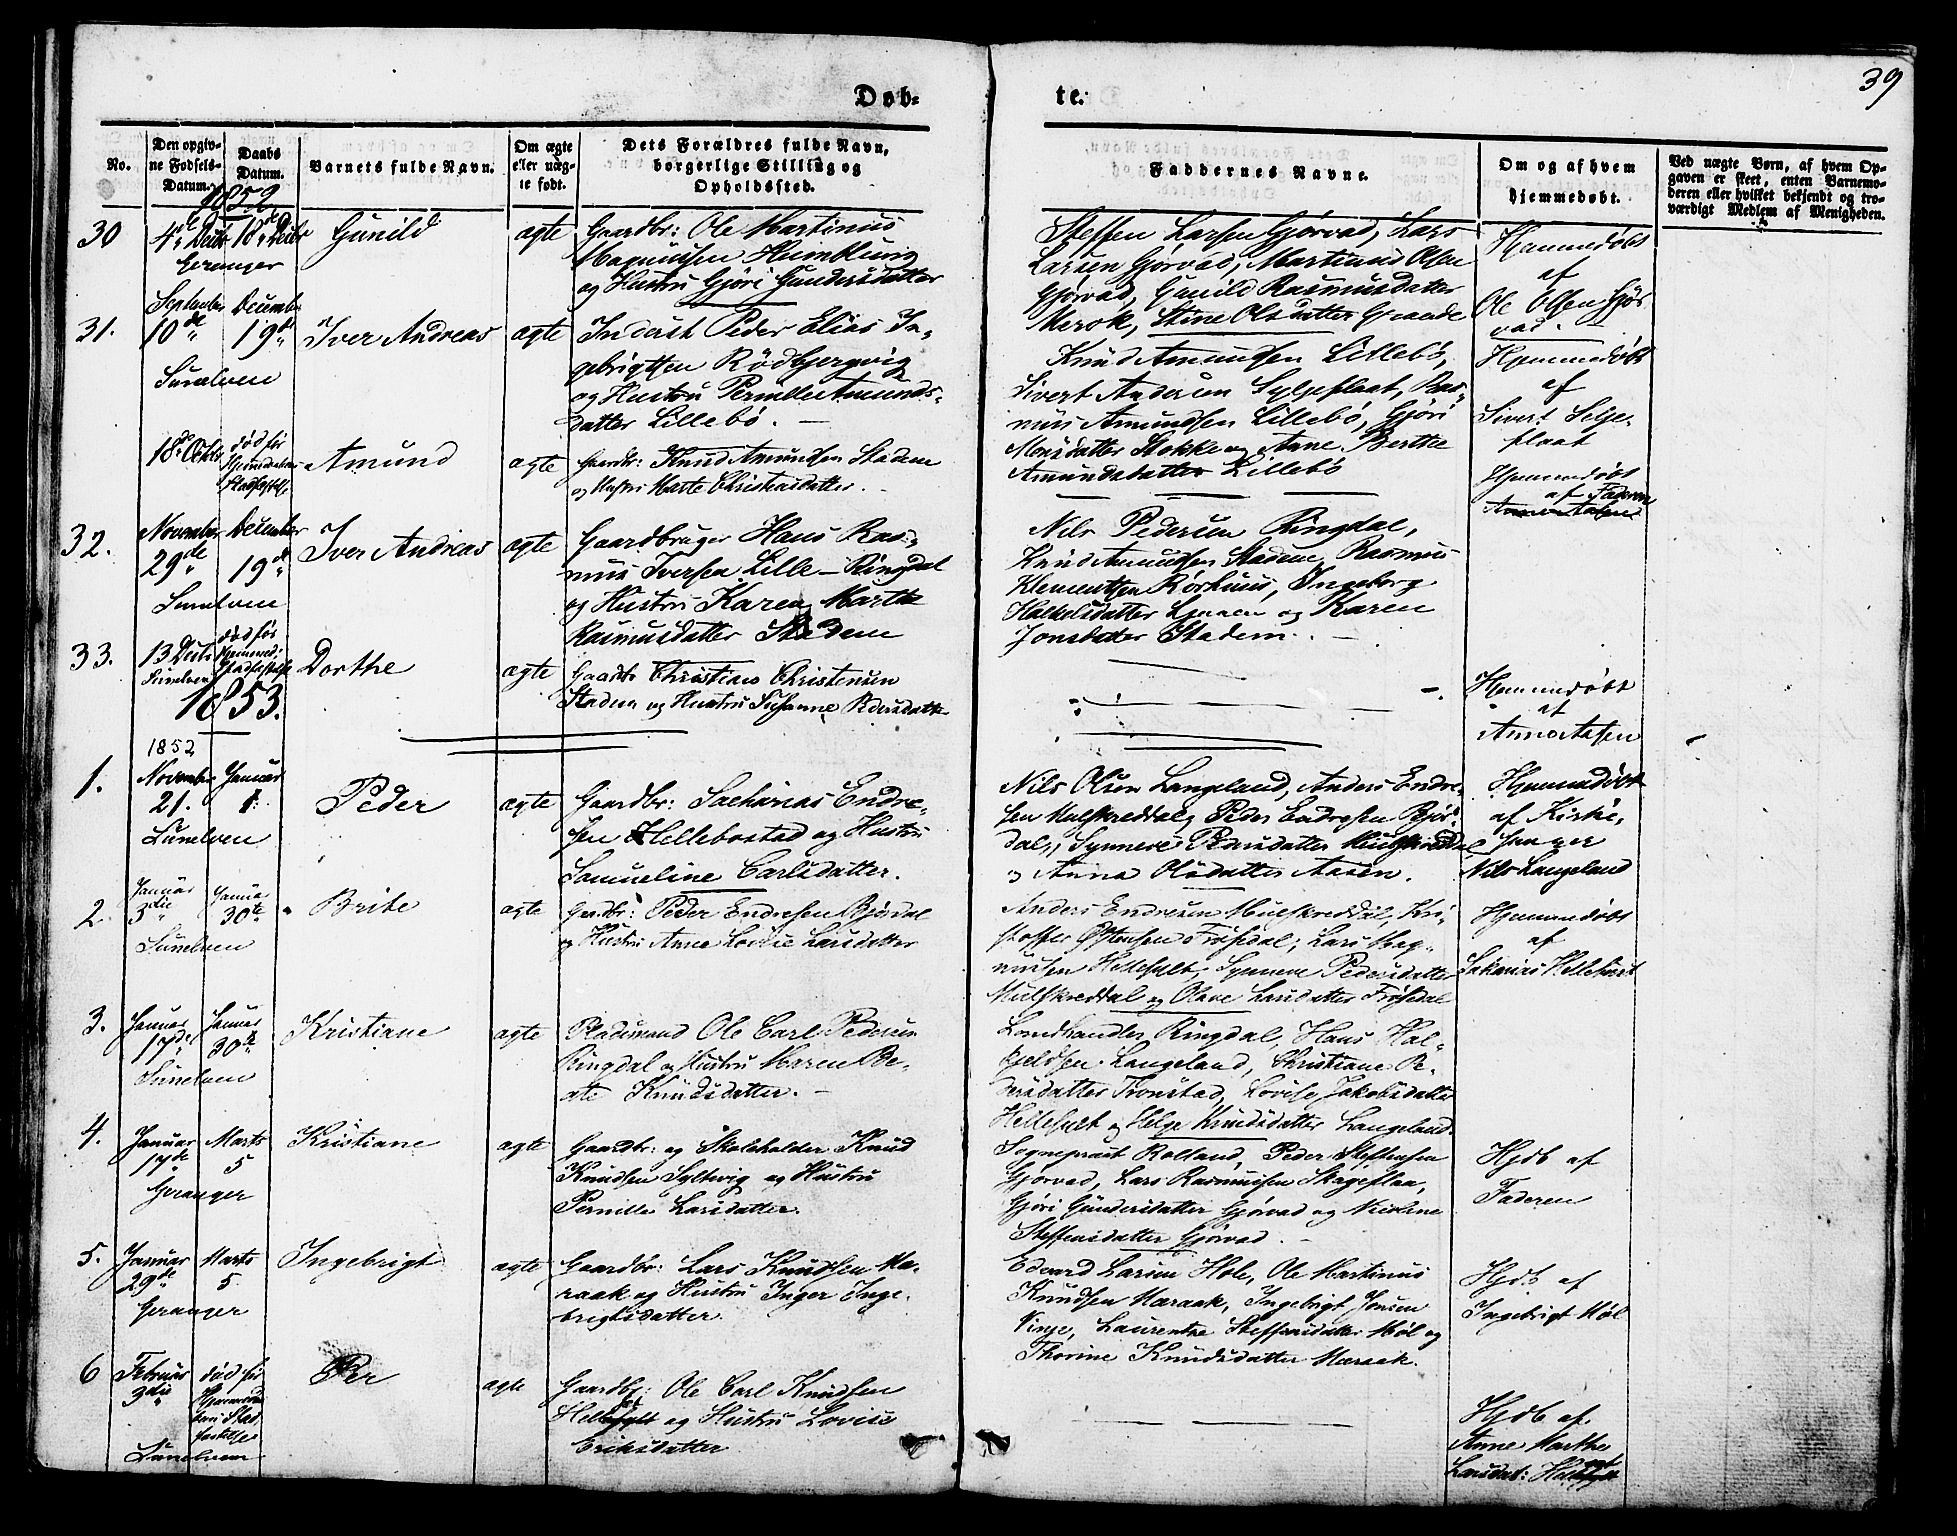 39
Døb-
te.
No.
Den opgiv-
ne Fødsels-
Datum.
Daabs
Datum.
Barnets fulde Navn.
Om ægte
eller uæg-
te født.
Dets Forældres fulde Navn,
borgerlige Stilling og
Opholdssted.
Faddernes Navne.
Om og af hvem
hjemmedøbt.
Ved uægte Børn, af hvem Op-
gaven er skeet, enten Barnemo-
deren eller hvilket bekjendt og tro-
værdigt Medlem af Menigheden.
1852
30
4de Decbr
Geranger
18de Decbr
Gunild
ægte
Gaardbr: Ole Martinus
Magnussen Humlung
og Hustru Gjøri Gundersdatter
Steffen Larsen Gjørvad, Lars
Larsen Gjørvad, Martinus Olsen
Gjørvad, Gunild Rasmusdatter
Merok, Stine Olsdatter Grande
Hjemmedøbt
af
Ole Olsen Gjør
vad.
31.
September
10de
Sunelven
December
19de
Iver Andreas
ægte
Inderst Peder Elias In-
gebrigtsen Rødbjergvig
og Hustru Pernille Amunds-
datter Lillebø.
Knud Amundsen Lillebø,
Sivert Andersen Syljeflaat, Ras-
mus Amundsen Lillebø, Gjøri
Monsdatter Stokke og Anne Berthe
Amundsdatter Lillebø
Hjemmedøbt
af
Sivert Selje-
flaat
18de Octbr
død før
Hjemmedaabens
Stadfæstelse
Amund
ægte
Gaardbr: Knud Amundsen Stadem
og Hustru Marte Christensdatter.
Hjemmedøbt
af Faderen
32.
November
29de
Sunelven
December
19de
Iver Andreas
ægte
Gaardbruger Hans Ras-
mus Iversen Lille-Ringdal
og Hustru Karen Marthe
Rasmusdatter Stadem
Nils Pedersen Ringdal,
Knud Amundsen Stadem, Rasmus
Klementsen Rørhuus, Ingeborg
Halkelsdatter Ljøen og Karen
Jonsdatter Stadem.
33.
13 Decbr
Sunelven
død før
Hjemmed:
Stadfæstelse
Dorthe
ægte
Gaardbr Christian Christensen
Stadem og Hustru Susanne Pedersdatter
Hjemmedøbt
af
Anne Aasen
1853.
1852
1.
November
21.
Sunelven
Januar
1.
Peder
ægte
Gaardbr: Sacharias Endre-
sen Hellebostad og Hustru
Samueline Carlsdatter.
Nils Olsen Langeland, Anders Endre-
sen Mulskreddal, Peder Endresen Bjør-
dal, Synneve Pedersdatter Mulskreddal
og Anna Olsdatter Aasen.
Hjemmedøbt
af Kirke-
sanger
Nils Langeland
2.
Januar
3die
Sunelven
Januar
30te
Brite
ægte
Gardbr: Peder Endresen Bjørdal
og Hustru Anne Lovise Larsdatter
Anders Endresen Mulskreddal, Kri-
stoffer Østensen Frøsedal, Lars Mag-
nussen Hellesylt, Synneve Pedersdatter
Mulskreddal og Olave Larsdatter Frøsedal
Hjemmedøbt
af
Sakarias Hellebost
3.
Januar
17de
Sunelven
Januar
30te
Kristiane
ægte
Pladsmand Ole Carl Pedersen
Ringdal og Hustru Maren Be-
ate Knudsdatter.
Landhandler Ringdal, Hans Hal-
kjeldsen Langeland, Christiane Pe-
dersdatter Tronstad, Lovise Jakobsdatter
Hellesylt og Helge Knudsdatter Langeland.
4.
Januar
17de
Geranger
Marts
5
Kristiane
ægte
Gaardbr: og Skoleholder Knud
Knudsen Syltevig og Hustru
Pernille Larsdatter.
Sogneprest Rolland, Peder Steffensen
Gjørvad, Lars Rasmussen Skageflaa,
Gjøri Gundersdatter Gjørvad og Nicoline
Steffensdatter Gjørvad.
Hjdb af
Faderen
5.
Januar
29de
Geranger
Marts
5
Ingebrigt
ægte
Gaardbr: Lars Knudsen Ma-
raak og Hustru Inger Inge-
brigtsdatter.
Edvard Larsen Hole, Ole Martinus
Knudsen Maraak, Ingebrigt Jonsen
Vinje, Laurentze Steffensdatter Møl og
Thorine Knudsdatter Maraak.
Hjdb af
Ingebrigt Møl
6
Februar
3die
Sunelven
død før
Hjemmedaa-
bens Stad
fæstelse
Per
ægte
Gaardbr: Ole Carl Knudsen
Hellesylt og Hustru Lovise
Eriksdatter
Hjdb af
Anne Marthe
Larsdat: Hellesylt